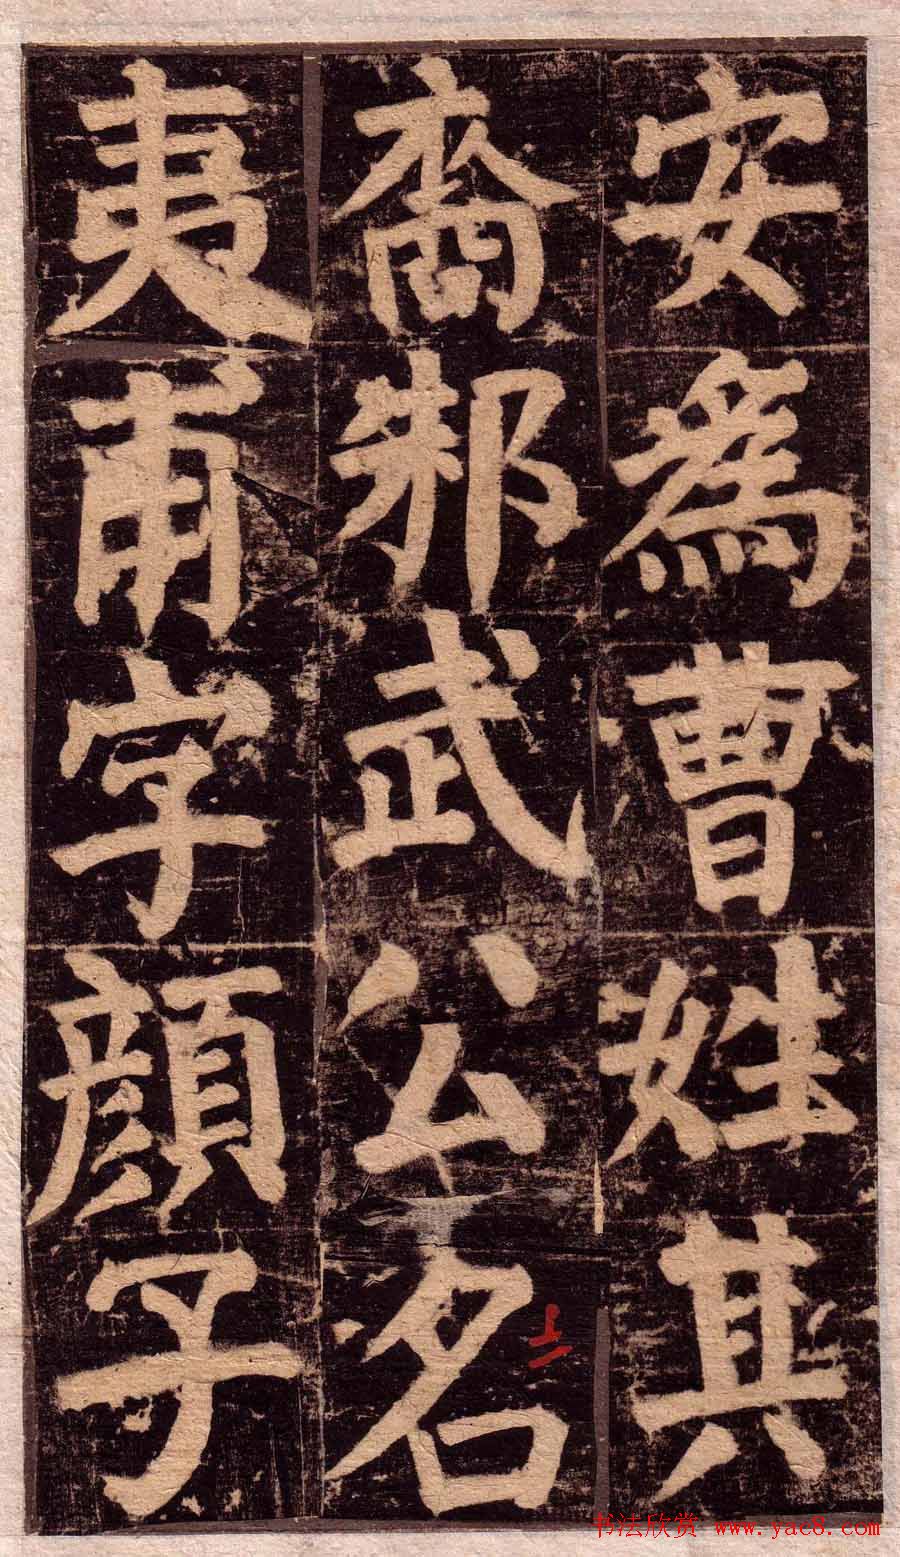 安為曹姓其
裔邾武公名
夷甫字顏子
书法欣赏 www.yac8.com